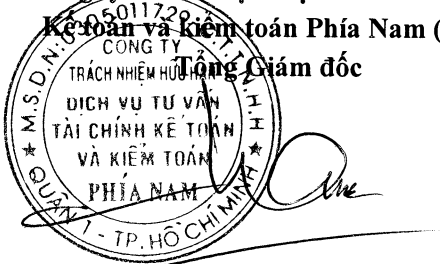 Kế toán và kiểm toán Phía Nam (
Tổng Giám đốc
CÔNG TY
TRÁCH NHIỆM HỮU HẠN
DỊCH VỤ TƯ VẤN
TÀI CHÍNH KẾ TOÁN
VÀ KIỂM TOÁN
PHÍA NAM
QUẬN 1 - TP. HỒ CHÍ MINH